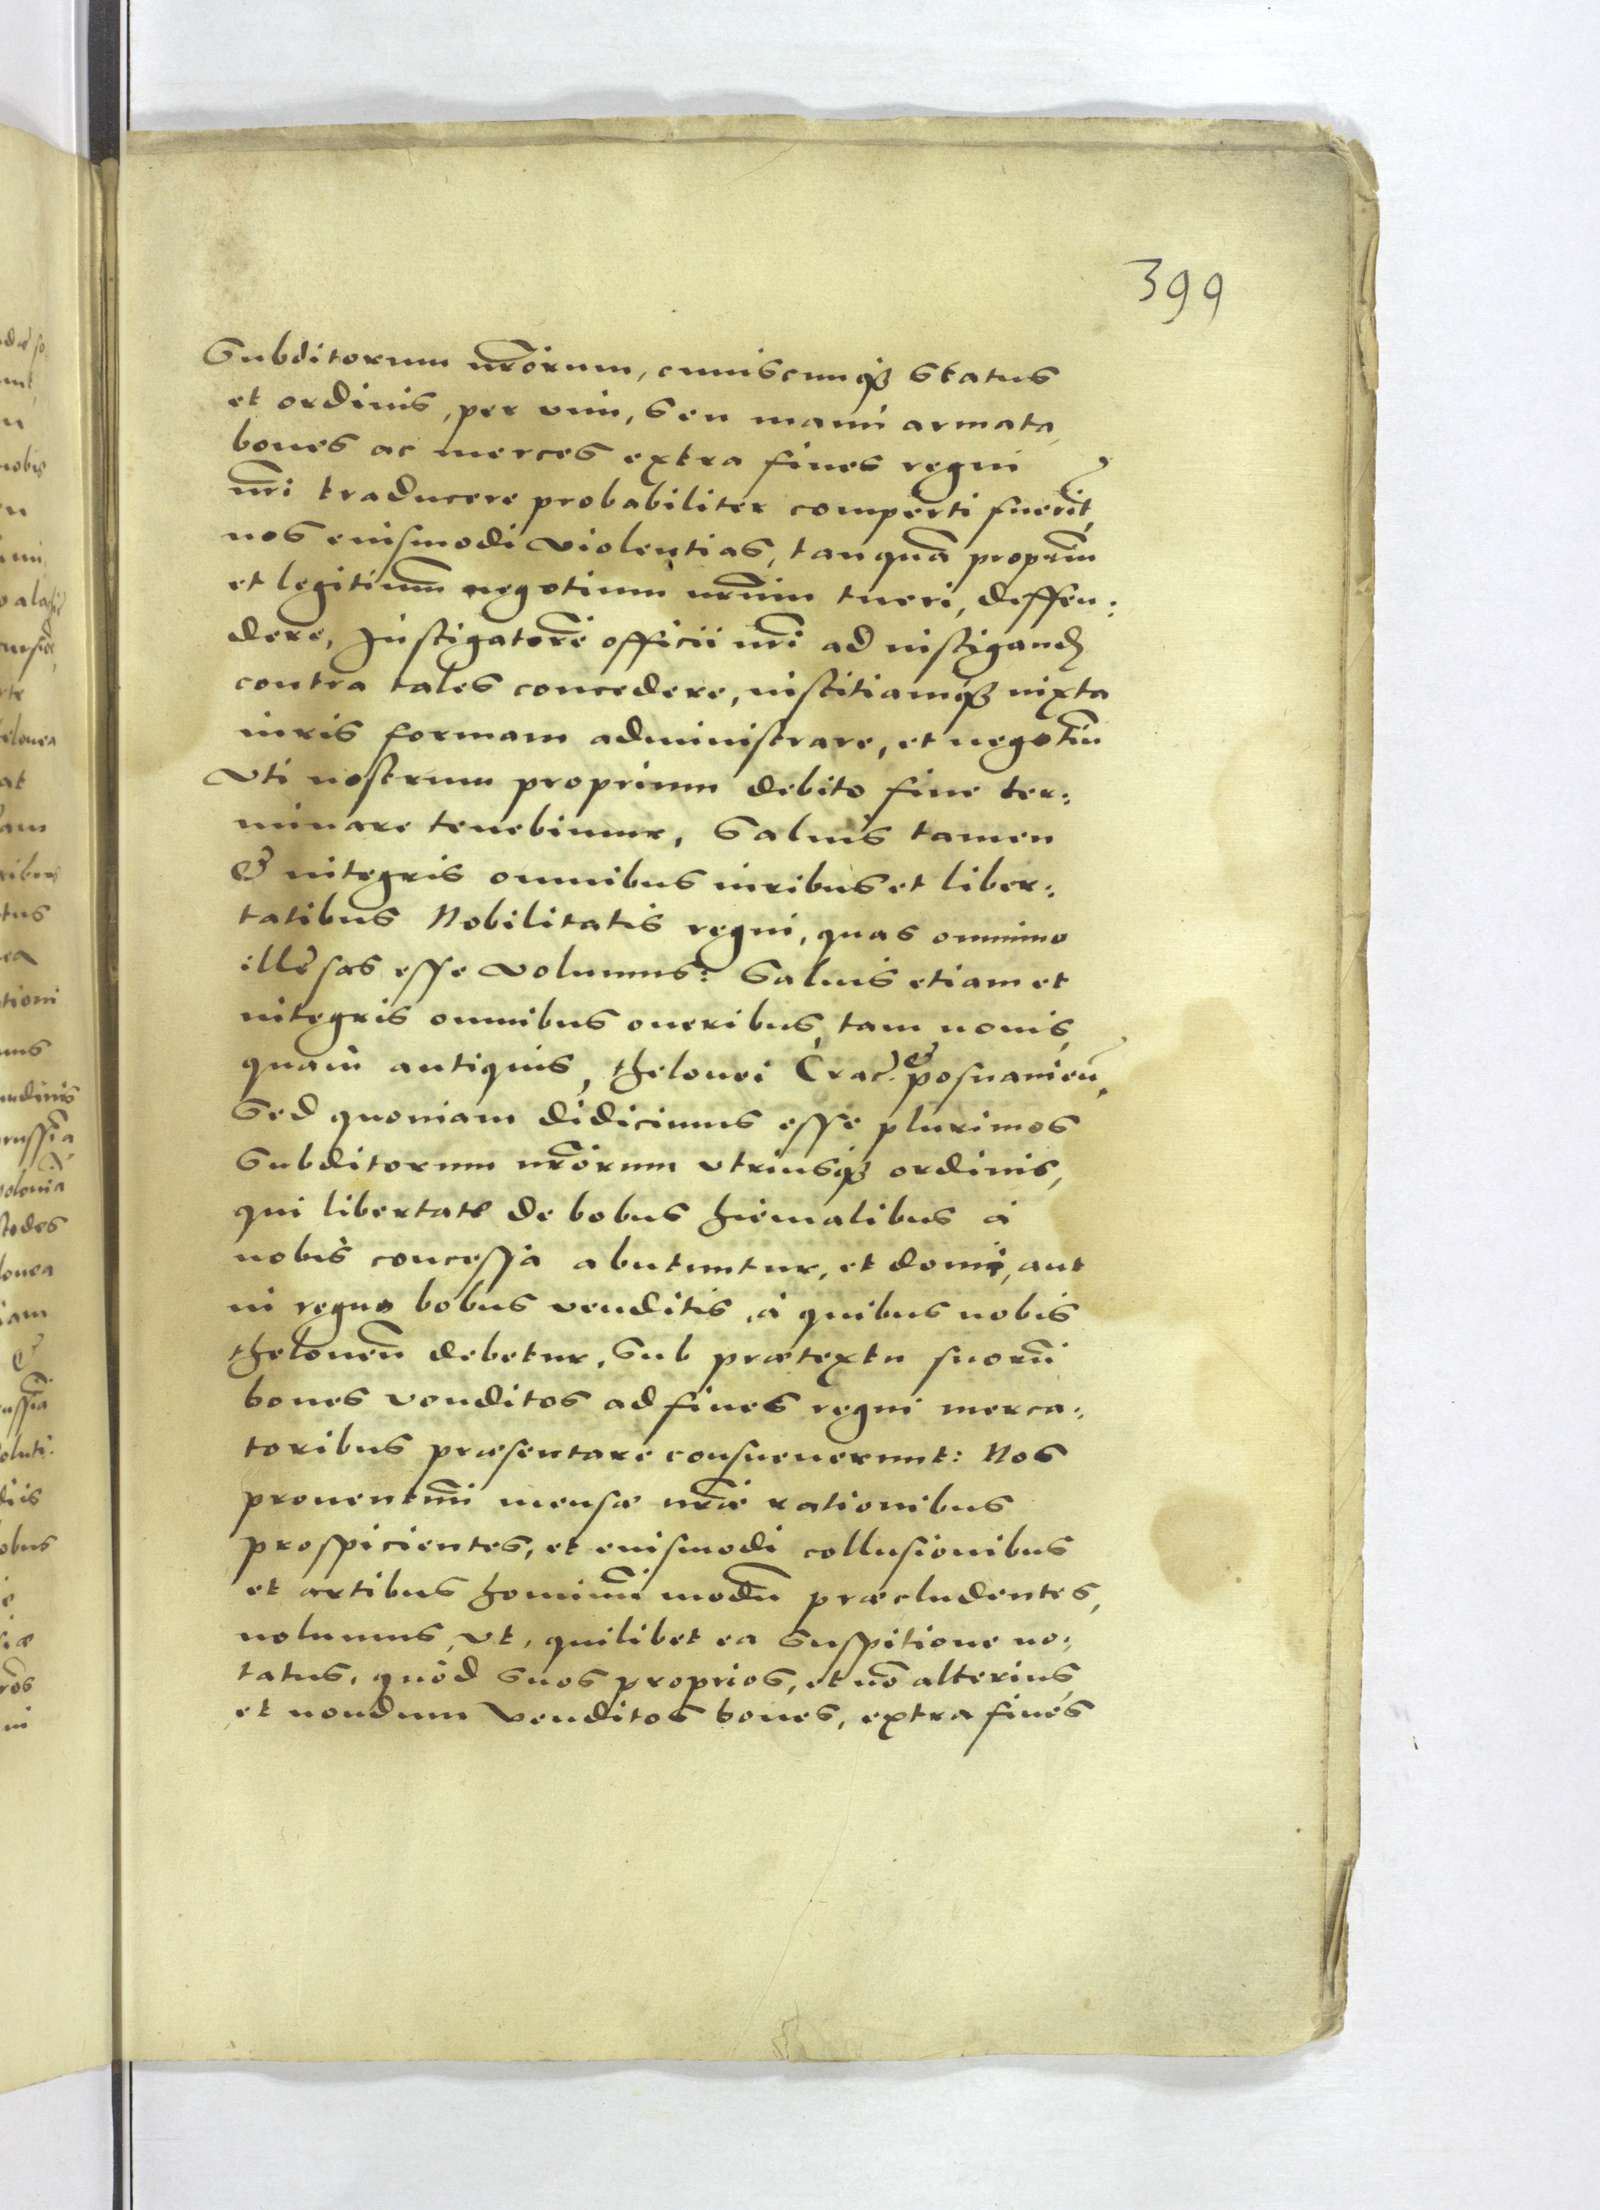 399
Subditorum nr̃orum, cuiuscunqꝫ status
et ordinis, per vim, seu manu armata,
boues ac merces extra fines regni
nr̃i traducere probabiliter comperti fuerĩt,
nos eiusmodi violentias, tanquã propriũ
et legitimũ negotium nr̃um tueri, deffen:
dere, Instigatorẽ officii nr̃i ad instigand̃
contra tales concedere, iustitiamqꝫ iuxta
iuris formam administrare, et negotiũ
vti nostrum proprium debito fine ter:
minare tenebimur, Saluis tamen
& integris omnibus iuribus et liber:
tatibus Nobilitatis regni, quas omnino
illęsas esse volumus: Saluis etiam et
integris omnibus oneribus, tam nouis,
quàm antiquis, thelonei Crac̃. & posnanieñ.
Sed quoniam didicimus esse plurimos
Subditorum nr̃orum vtriusqꝫ ordinis,
qui libertate de bobus hiemalibus à
nobis concessa abutuntur, et domi, aut
in regno bobus venditis, à quibus nobis
theloneũ debetur, Sub prætextu suorũ
boues venditos ad fines regni merca:
toribus præsentare consueuerunt: Nos
prouentuũ mensæ nr̃æ rationibus
prospicientes, et eiusmodi collusionibus
et artibus hominũ modũ præcludentes,
uolumus, vt, quilibet ea suspitione no:
tatus, quòd suos proprios, et nõ alterius,
et nondum venditos boues, extra fines